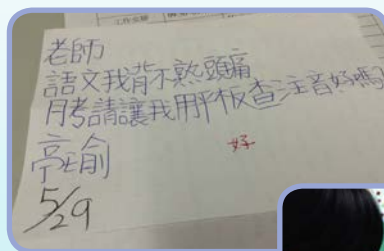 老師
語文我背不熟頭痛
月考請讓我用平板查注音好嗎?
亭瑜
好
5/29